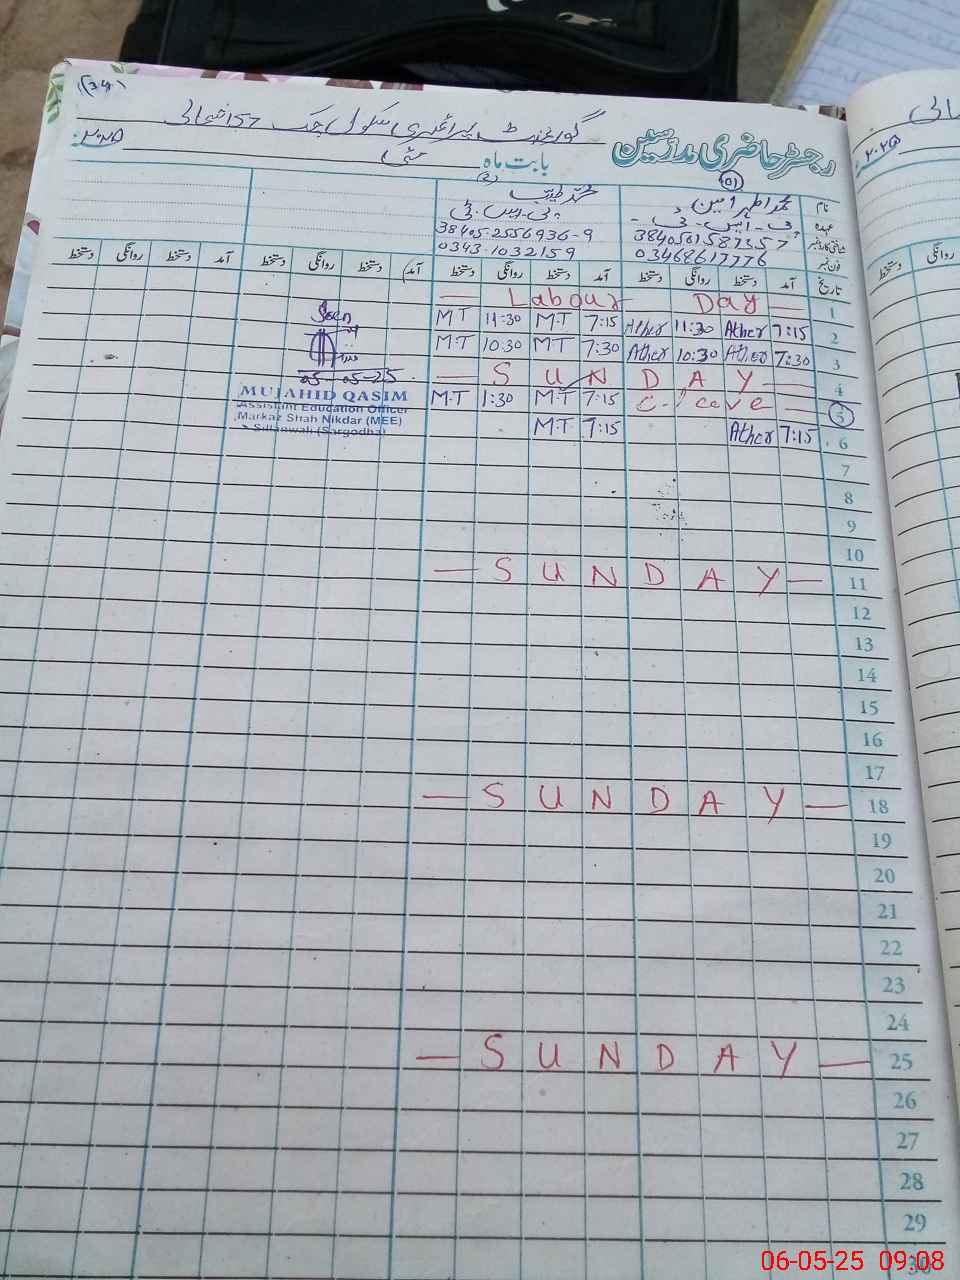 (34)
گورنمنٹ پرائمری سکول چک 157 شمالی
رجسٹر حاضری مدرسین
بابت ماہ مئی ۲۰۲۵
(01)
نام محمد اطہر امین محمد طیب
عہدہ پی۔ایس۔ٹی پی۔ایس۔ٹی
شناختی کارڈ نمبر 3840561587357 38405-2556936-9
فون نمبر 03468617776 0343-1032159
تاریخ آمد دستخط روانگی دستخط آمد دستخط روانگی دستخط آمد دستخط روانگی دستخط آمد دستخط روانگی دستخط
— Labour Day — 1
MT 11:30 MT 7:15 Ather 11:30 Ather 7:15 2
MT 10:30 MT 7:30 Ather 10:30 Ather 7:30 3
— S U N D A Y — 4
M.T 1:30 M.T 7:15 C. Leave — 5
M.T 7:15 Ather 7:15 6
Seen
05-05-25
MUJAHID QASIM
Assistant Education Officer
Markaz Shah Nikdar (MEE)
Sillanwali (Sargodha)
7
8
9
10
— S U N D A Y — 11
12
13
14
15
16
17
— S U N D A Y — 18
19
20
21
22
23
24
— S U N D A Y — 25
26
27
28
29
30
۲۰۲۵
روانگی دستخط
06-05-25 09:08